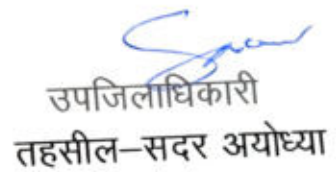 उपजिलाधिकारी
तहसील–सदर अयोध्या